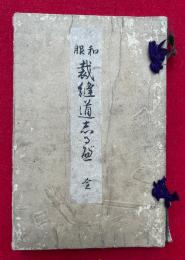 和服
裁縫道志る遍 全